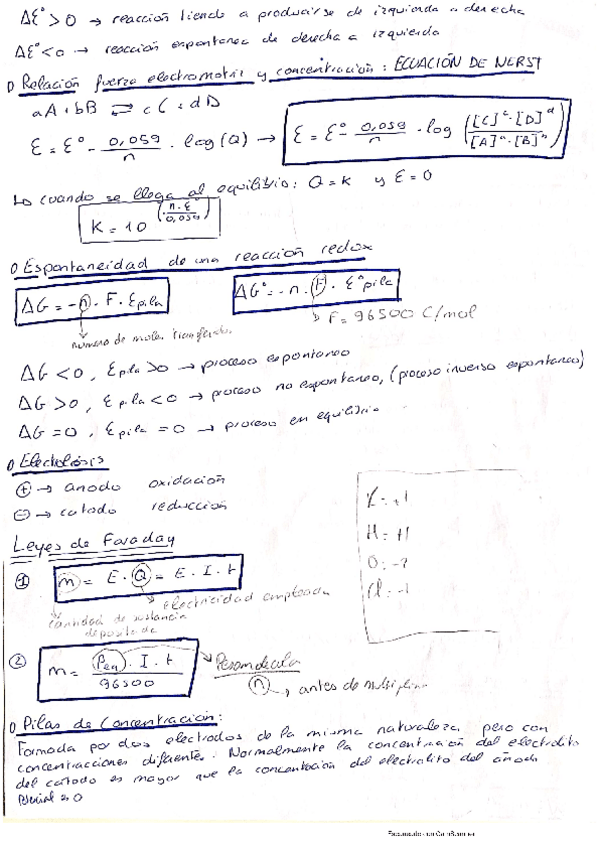 ΔƐ° > 0 → reacción tiende a producirse de izquierda a derecha
ΔƐ° < 0 → reacción espontanea de derecha a izquierda
Relación fuerza electromotriz y concentración: ECUACIÓN DE NERST
aA + bB ⇄ cC + dD
Ɛ = Ɛ° - 0,059/n · log(Q) → Ɛ = Ɛ° - 0,059/n · log([C]^c · [D]^d / [A]^a · [B]^b)
Lo cuando se llega al equilibrio: Q = K y Ɛ = 0
K = 10^(n·Ɛ°/0,059)
Espontaneidad de una reacción redox
ΔG = -n · F · Ɛpila ΔG° = -n · F · Ɛ°pila
número de moles transferidos. F = 96500 C/mol
ΔG < 0, Ɛpila > 0 → proceso espontaneo
ΔG > 0, Ɛpila < 0 → proceso no espontaneo, (proceso inverso espontaneo)
ΔG = 0, Ɛpila = 0 → proceso en equilibrio
Electrolisis
⊕ → anodo oxidación
⊖ → catodo reducción
H = +1
Leyes de Faraday
① m = E · Q = E · I · t
electricidad empleada
cantidad de sustancia
depositada
② m = Peq · I · t / 96500
n → antes de
Pilas de concentración:
Formada por dos electrodos de la misma naturaleza pero con
concentracciones diferentes. Normalmente la concentración del electrolito
del catodo es mayor que la concentración del electrolito del ánodo
Escaneado con CamScanner